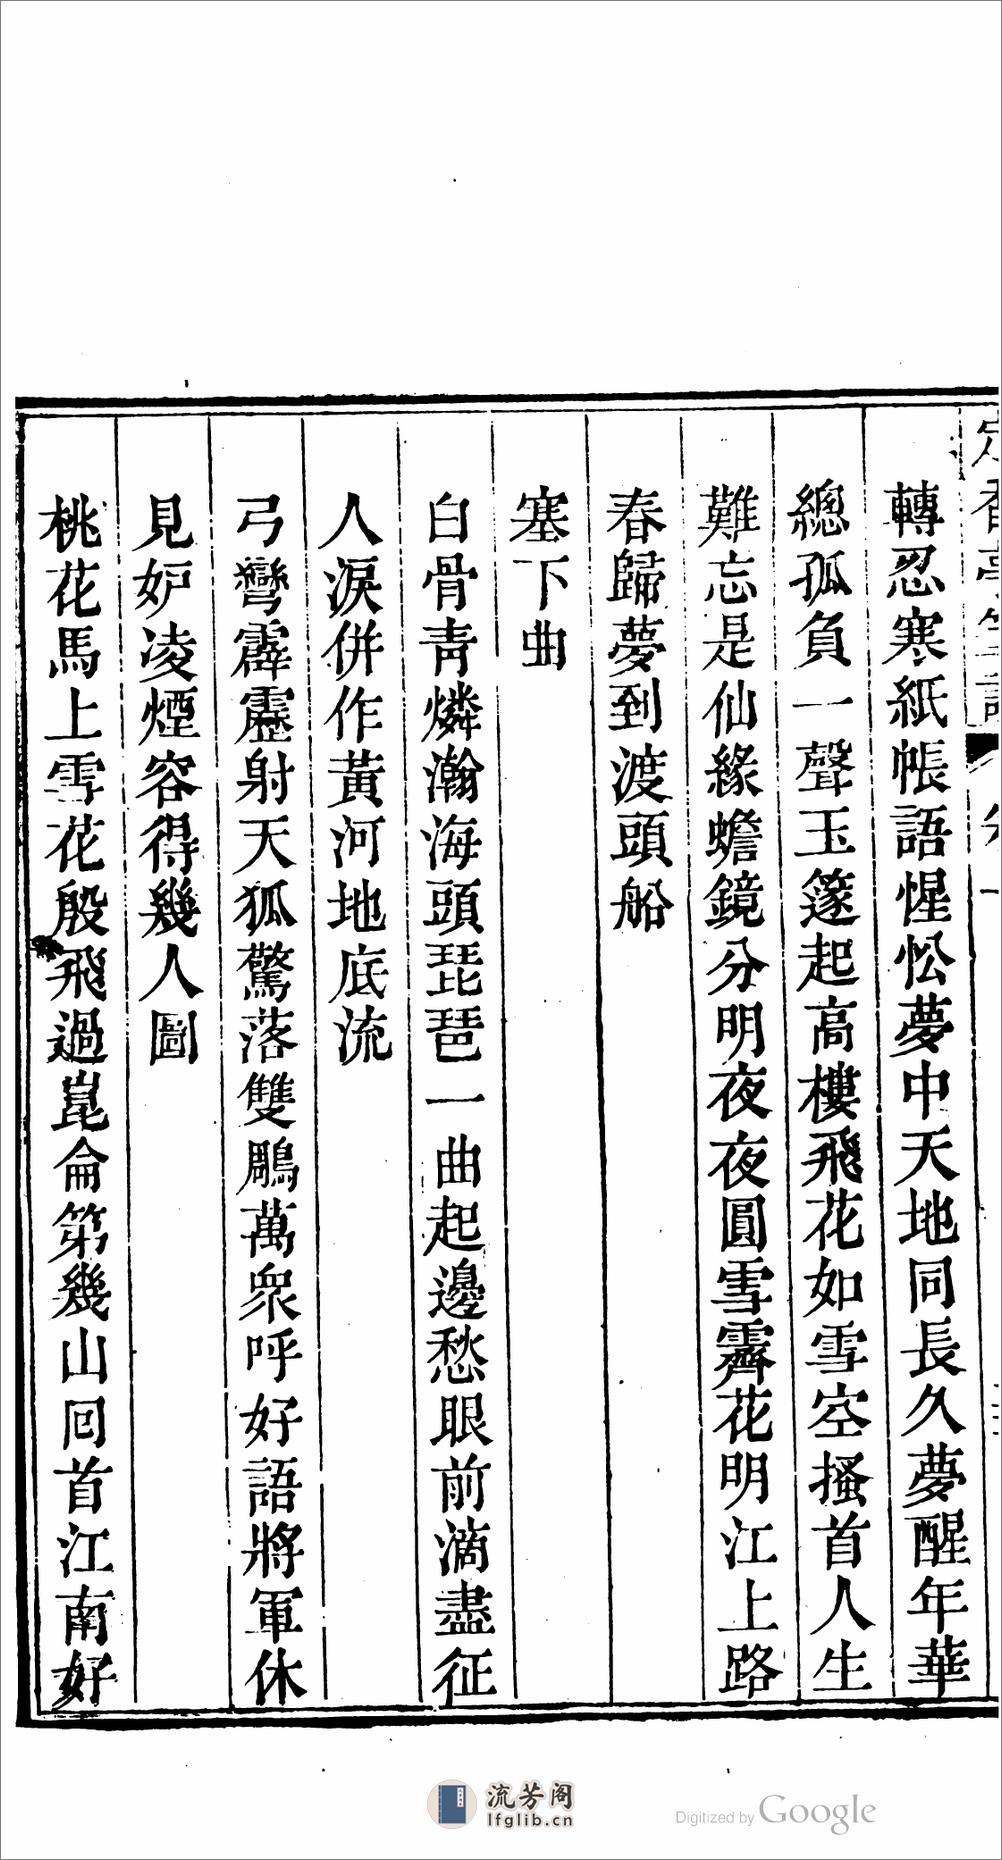 定香亭筆談 卷一
轉忍寒紙帳語惺忪夢中天地同長久夢醒年華
總孤負一聲玉篴起高樓飛花如雪空搔首人生
難忘是仙緣蟾鏡分明夜夜圓雪霽花明江上路
春歸夢到渡頭船
塞下曲
白骨靑燐瀚海頭琵琶一曲起邊愁眼前滴盡征
人淚併作黃河地底流
弓彎霹靂射天狐驚落雙鵰萬衆呼好語將軍休
見妒凌煙容得幾人圖
桃花馬上雪花殷飛過崑侖第幾山回首江南好
流芳阁
lfglib.cn
Digitized by Google